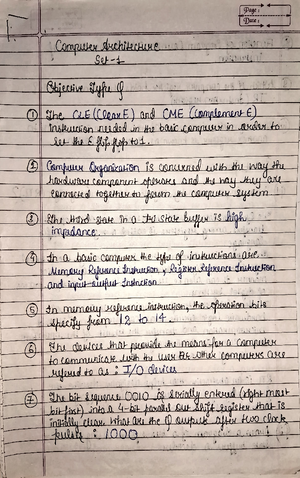 Page :
Date :
Computer Architecture
Set - 1
Objective Type Q
① The CLE (Clear E) and CME (Complement E)
Instruction needed in the basic computer in order to
set the E flip flop to 1.
② Computer Organization is concerned with the way the
hardware component operate and the way they are
connected together to form the computer system
③ The third state in a Tri State buffer is high
impedance
④ In a basic computer the type of instructions are
Memory Reference Instruction, Register Reference Instruction
and input-output Instruction
⑤ In memory reference instruction, the operation bits
specify from 12 to 14.
⑥ The devices that provide the means for a computer
to communicate with the user other computers are
referred to as : I/O devices
⑦ The bit sequence 0010 is serially entered (right most
bit first) into a 4-bit parallel out shift register that is
initially clear. What are the Q outputs after two clock
pulses : 1000